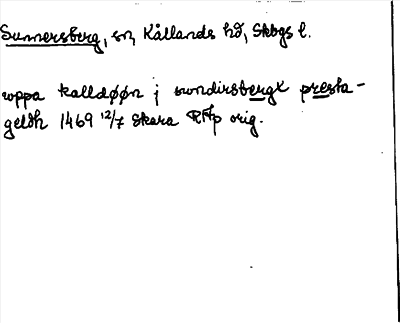 Sunnersberg, sn, Kållands hd, Skbgs l.
vppa kalldøøn j swndirsbergx presta-
geldh 1469 12/7 Skara RAp orig.